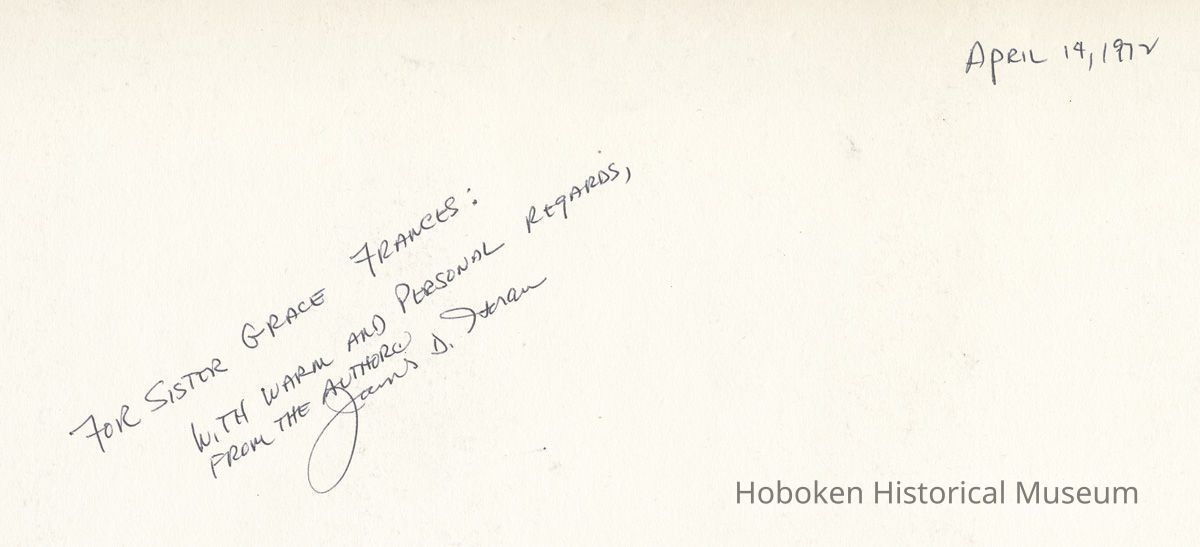 April 14, 1972
For Sister Grace Frances:
With warm and personal regards,
from the author
James D. Horan
Hoboken Historical Museum